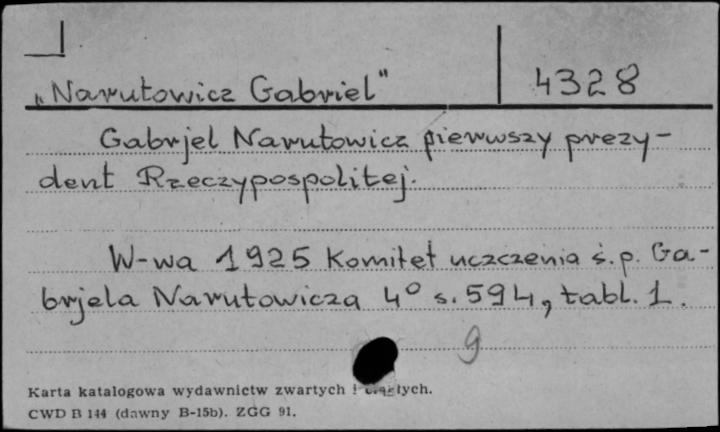 „Narutowicz Gabriel" 4328
Gabrjel Narutowicz pierwszy prezy-
dent Rzeczypospolitej.
W-wa 1925 Komitet uczczenia ś.p. Ga-
brjela Narutowicza 4° s. 594, tabl. 1.
9
Karta katalogowa wydawnictw zwartych i ciągłych.
CWD B 144 (dawny B-15b). ZGG 91.